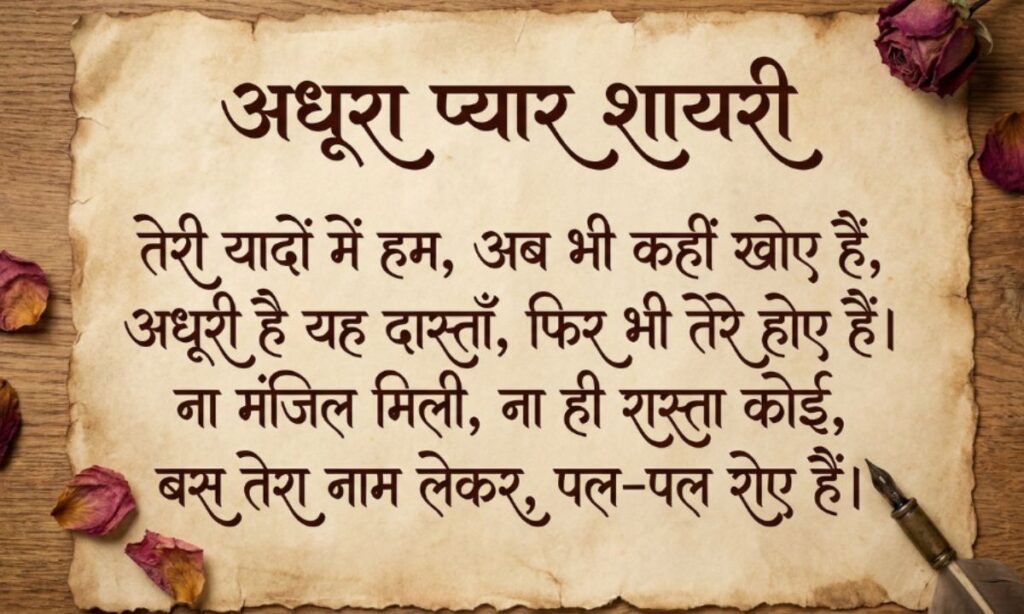 अधूरा प्यार शायरी
तेरी यादों में हम, अब भी कहीं खोए हैं,
अधूरी है यह दास्ताँ, फिर भी तेरे होए हैं।
ना मंजिल मिली, ना ही रास्ता कोई,
बस तेरा नाम लेकर, पल-पल रोए हैं।